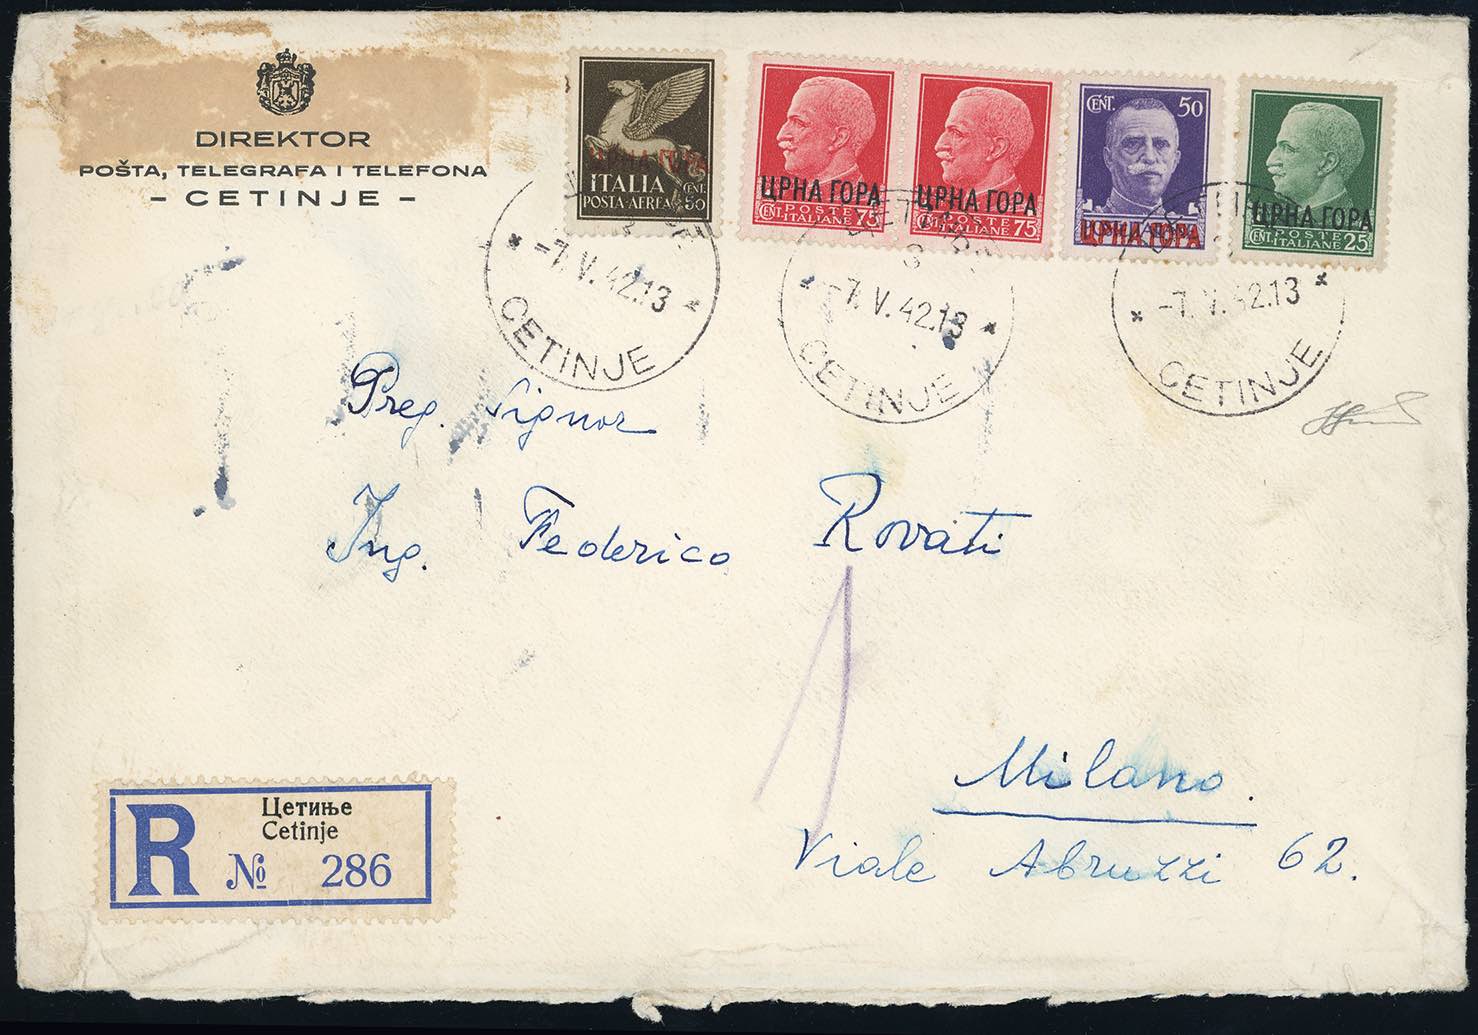 DIREKTOR
POŠTA, TELEGRAFA I TELEFONA
- CETINJE -
ЦРНА ГОРА
ITALIA
POSTA-AEREA
CENT. 50
ЦРНА ГОРА
POSTE
CENT. ITALIANE 75
ЦРНА ГОРА
POSTE
CENT. ITALIANE 75
CENT. 50
ЦРНА ГОРА
ЦРНА ГОРА
POSTE
CENT. ITALIANE 25
-7. V. 42.13
CETINJE
-7. V. 42.13
CETINJE
-7. V. 42.13
CETINJE
Preg. Signor
Ing. Federico Rovati
Milano.
Viale Abruzzi 62.
R
Цетиње
Cetinje
№ 286